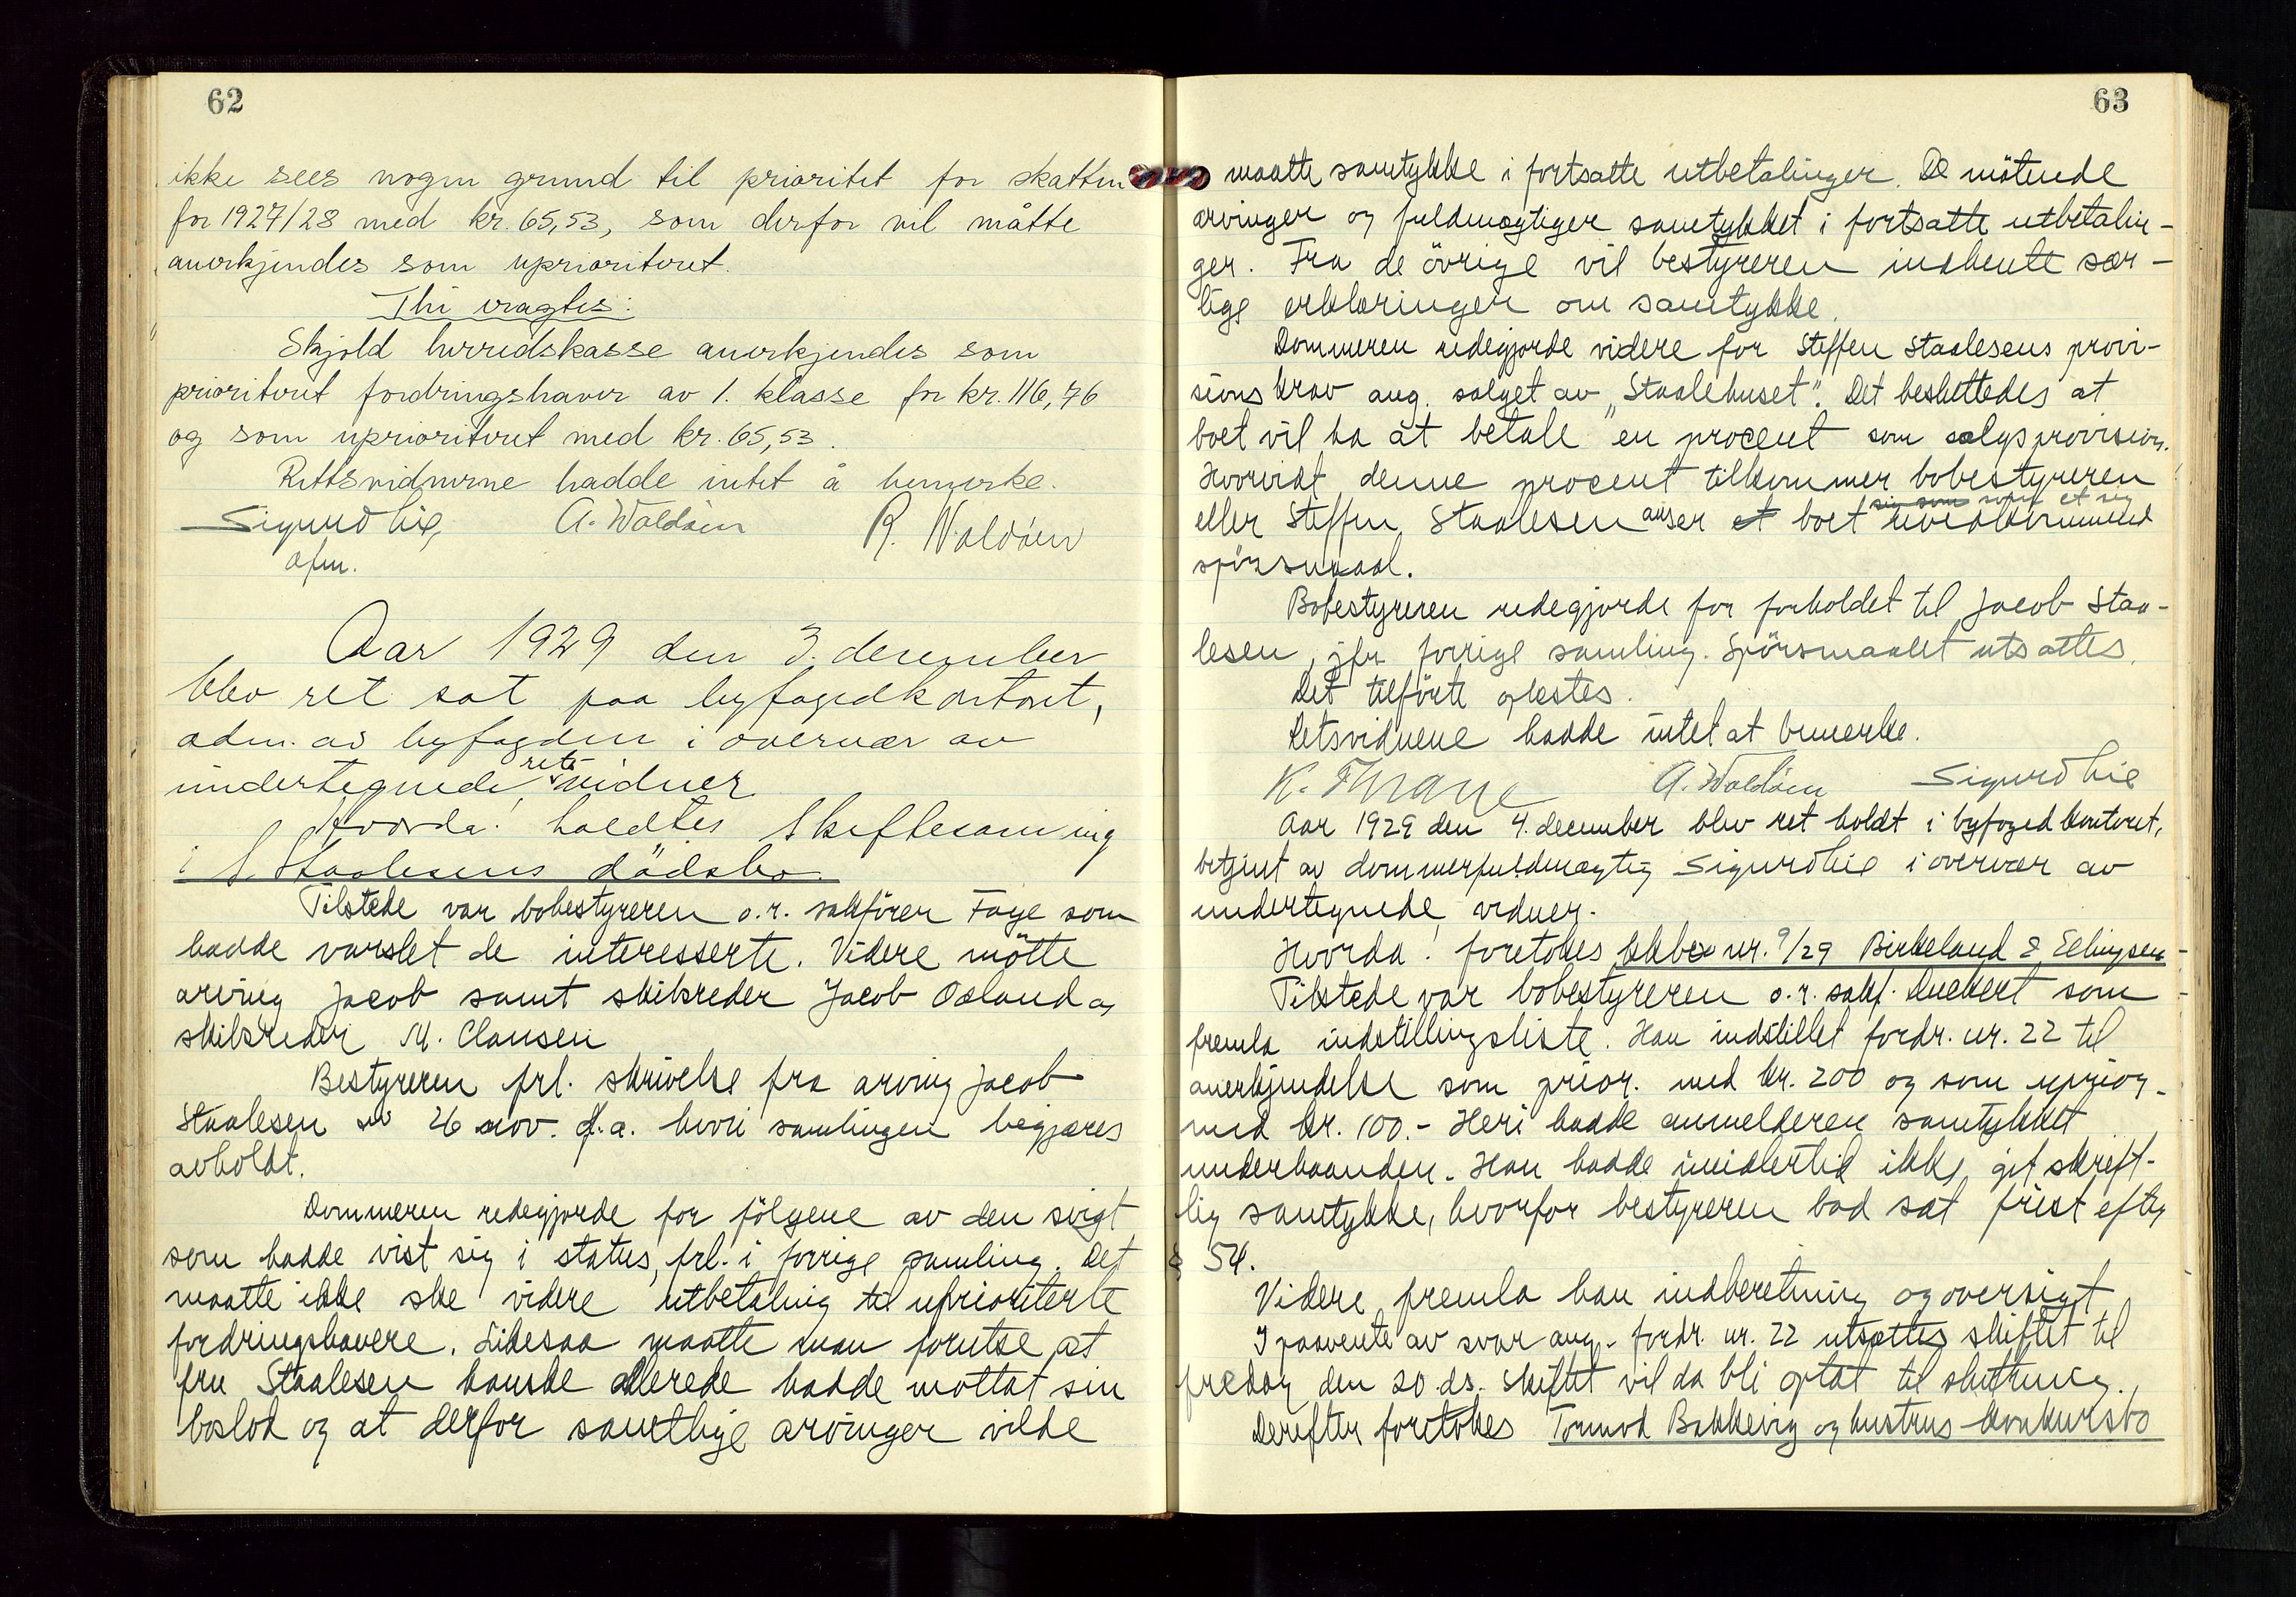 62
ikke sees nogen grund til prioritet for skatten
for 1927/28 med kr. 65,53, som derfor vil måtte
anerkjendes som uprioritert.
Thi eragtes:
Skjold herredskasse anerkjendes som
prioritert fordringshaver av 1. klasse for kr. 116,76
og som uprioritert med kr. 65,53.
Rettsvidnerne hadde intet å bemerke.
Sigurd Lie, A. Waldåen R. Waldåen
dfm.
Aar 1929 den 3. december
blev ret sat paa byfogedkontoret,
adm. av byfogden i overvær av
undertegnede retsvidner
Hvorda: holdtes skiftesamling
i S. Staalesens dödsbo.
Tilstede var bobestyreren o.r. sakförer Faye som
hadde varslet de interesserte. Videre mötte
arving Jacob samt skibsreder Jacob Odland og
skibsreder M. Clausen
Bestyreren frl. skrivelse fra arving Jacob
Staalesen av 26 nov. d.a. hvori samlingen begjæres
avholdt.
Dommeren redegjorde for fölgene av den svigt
som hadde vist sig i status, frl. i forrige samling. Det
maatte ikke ske videre utbetaling til uprioriterte
fordringshavere. Likesaa maatte man forutse at
fru Staalesen kanske allerede hadde mottat sin
boslod og at derfor samtlige arvinger vilde
63
maatte samtykke i fortsatte utbetalinger. De mötende
arvinger og fuldmægtiger samtykket i fortsatte utbetalin-
ger. Fra de övrige vil bestyreren indhente sær-
lige erklæringer om samtykke.
Dommeren redegjorde videre for Steffen Staalesens provi-
sions krav ang. salget av "Staalehuset". Det besluttedes at
boet vil ha at betale en procent som salgsprovision.
Hvorvidt denne procent tilkommer bobestyreren
sig som som et sig
eller Steffen Staalesen anser et boet uvedkommend
spörsmaal.
Bobestyreren redegjorde for forholdet til Jacob Staa-
lesen, jfr. forrige samling. Spörsmaalet utsattes.
Det tilförte oplestes.
Retsvidnene hadde intet at bemerke.
K. Thrane A. Waldåen Sigurd Lie
Aar 1929 den 4. december blev ret holdt i byfogedkontoret,
betjent av dommerfuldmægtig Sigurd Lie i overvær av
undertegnede vidner.
Hvorda! foretokes kkbo nr. 9/29 Birkeland & Ellingsen
Tilstede var bobestyreren o.r. sakf. Dueckert som
fremla indstillingsliste. Han indstillet fordr. nr. 22 til
anerkjendelse som prior. med kr. 200 og som uprior.
med kr. 100.- Heri hadde anmelderen samtykket
underhaanden. Han hadde imidlertid ikke git skrift-
lig samtykke, hvorfor bestyreren bad sat frist efter
§ 54.
Videre fremla han indberetning og oversigt
I paavente av svar ang. fordr. nr. 22 utsattes skiftet til
fredag den 20 ds. Skiftet vil da bli optat til slutning.
Derefter foretokes Tormod Bakkevig og hustrus konkursbo